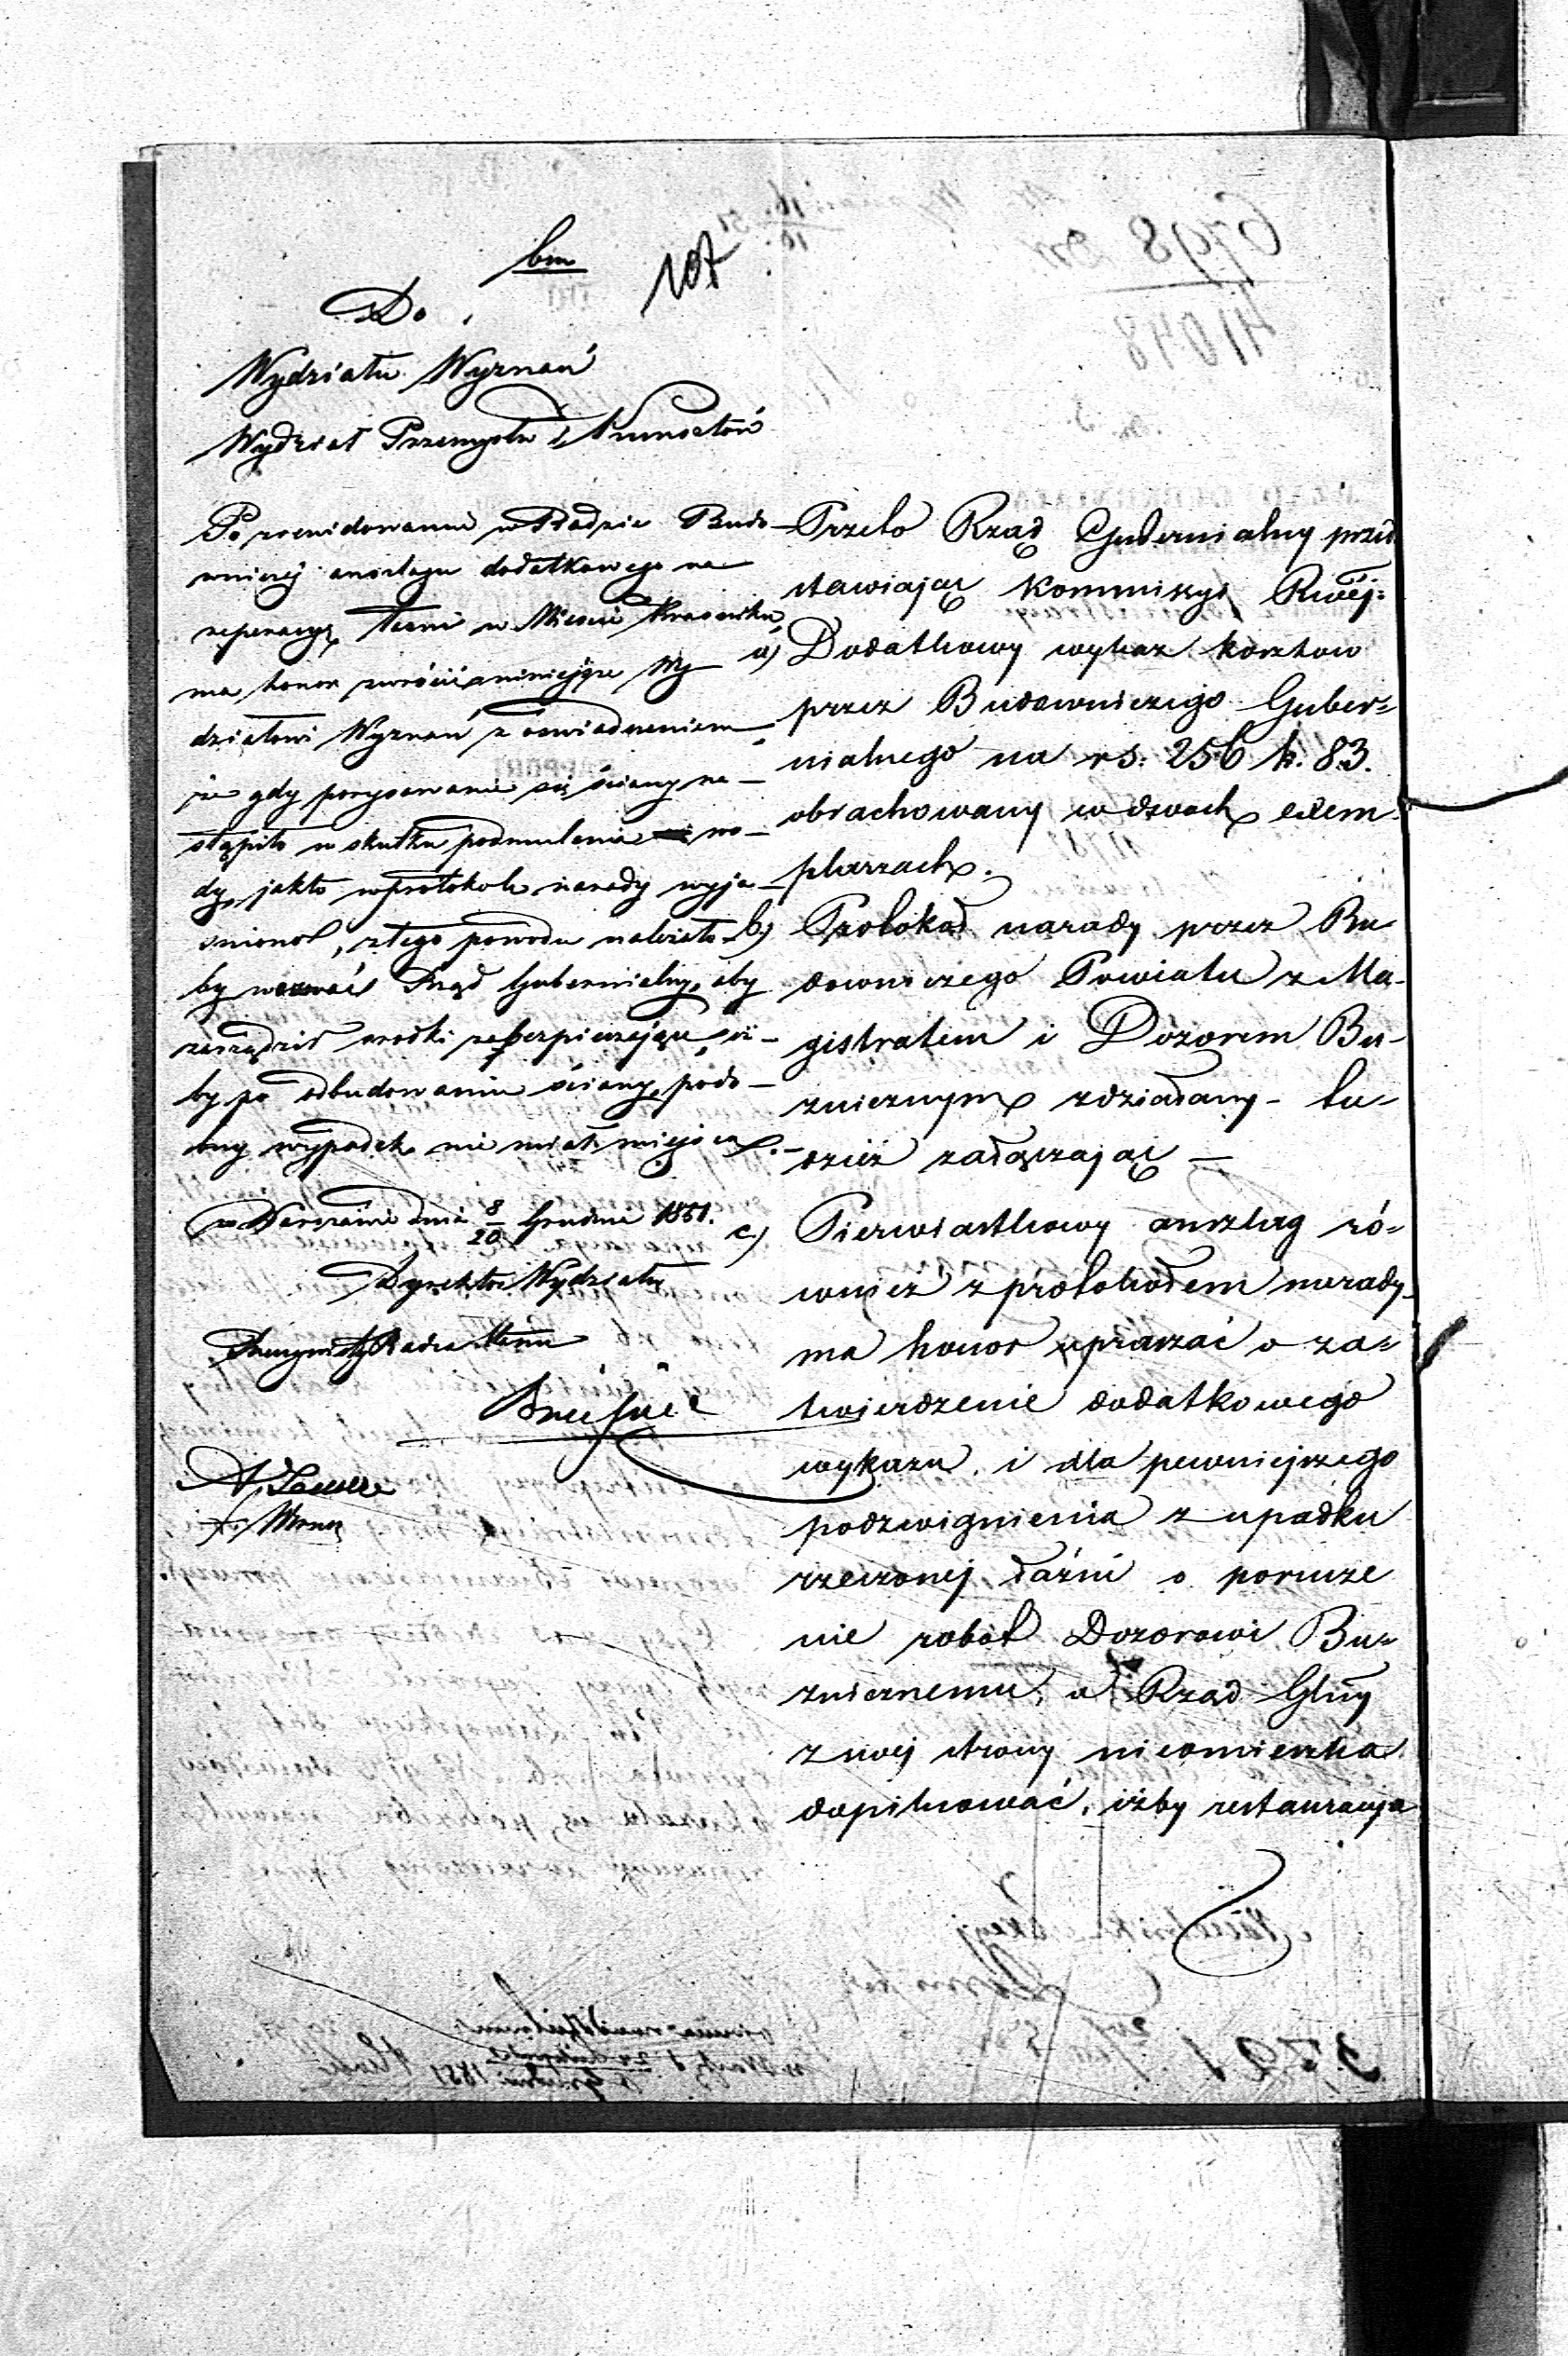 bm
107
Do
Wydziału Wyznań
Wydział Przemysłu i Kunsztów
Po zrewidowaniu w Radzie Budo-
wniczej anszlagu dodatkowego na
reperacyę łaźni w Mieście Krasniku,
ma honor zwrócić niniejsze Wy-
działowi Wyznań z oświadczeniem
że gdy porysowanie się ściany na-
stąpiło w skutku podmulenia wo-
dy, jak to w protokole narady wyja-
śniono, z tego powodu należało-
by wezwać Rząd Gubernialny, aby
zarządził środki zabezpieczające, iż-
by po odbudowaniu ściany, podo-
bny wypadek nie miał miejsca.-
w Warszawie dnia 8/20 Grudnia 1851.
Dyrektor Wydziału
Rzeczywisty Radca Stanu
Przeto Rząd Gubernialny przed
stawiając Kommisyi Rząej-
a) Dodatkowy wykaz kosztow
przez Budowniczego Guber-
nialnego na rs: 256 k. 83.
obrachowany w dwoch exem-
plarzach.
b) Protokoł narady przez Bu-
downiczego Powiatu z Ma-
gistratem i Dozorem Bu-
żnicznym zdziałany - tu-
dzież załączając —
c) Pierwiastkowy anszlag ró-
wnież z protokołem narady
ma honor upraszać o za-
twierdzenie dodatkowego
wykazu, i dla pewniejszego
podzwignienia z upadku
rzeczonej łaźni o porucze
nie robot Dozorowi Bu-
żnicznemu, a Rząd Glny
z swej strony nieomieszka
dopilnować, iżby restauracya